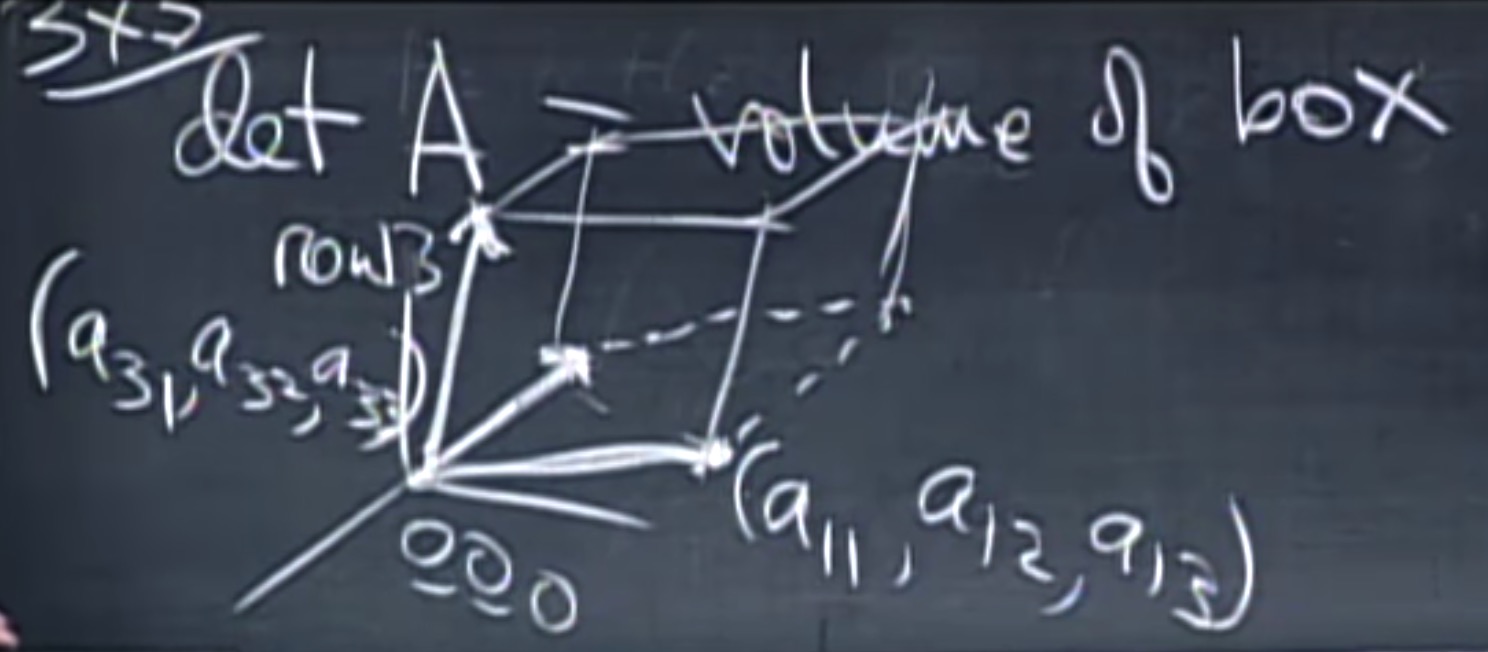 3x3
det A = volume of box
row 3
(a31, a32, a33)
(a11, a12, a13)
000